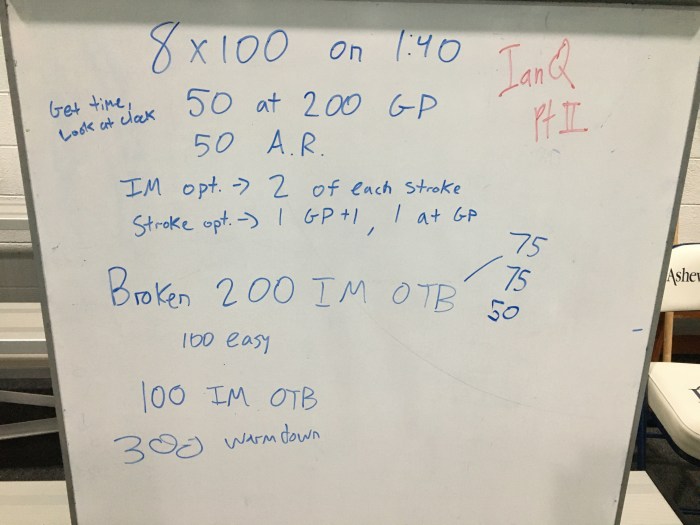 8 x 100 on 1:40
IanQ
Pt II
Get time,
Look at clock
50 at 200 GP
50 A.R.
IM opt. → 2 of each stroke
Stroke opt. → 1 GP +1, 1 at GP
Broken 200 IM OTB
75
75
50
100 easy
100 IM OTB
300 warmdown
Ashe